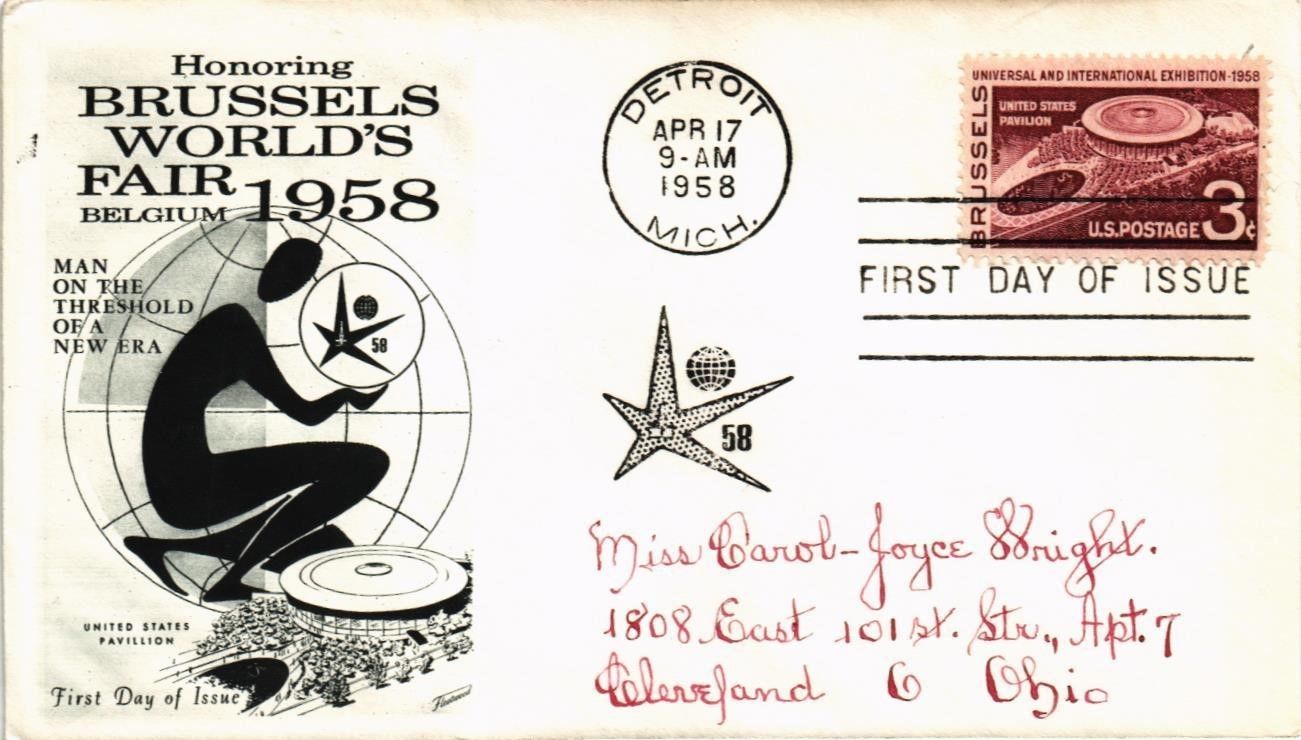 Honoring
BRUSSELS
WORLD'S
FAIR 1958
BELGIUM
MAN
ON THE
THRESHOLD
OF A
NEW ERA
58
UNITED STATES
PAVILLION
First Day of Issue
Fleetwood
DETROIT
APR 17
9-AM
1958
MICH.
UNIVERSAL AND INTERNATIONAL EXHIBITION-1958
BRUSSELS
UNITED STATES
PAVILION
U.S.POSTAGE 3¢
FIRST DAY OF ISSUE
58
Miss Carol-Joyce Wright.
1808 East 101st. Str., Apt. 7
Cleveland 6 Ohio